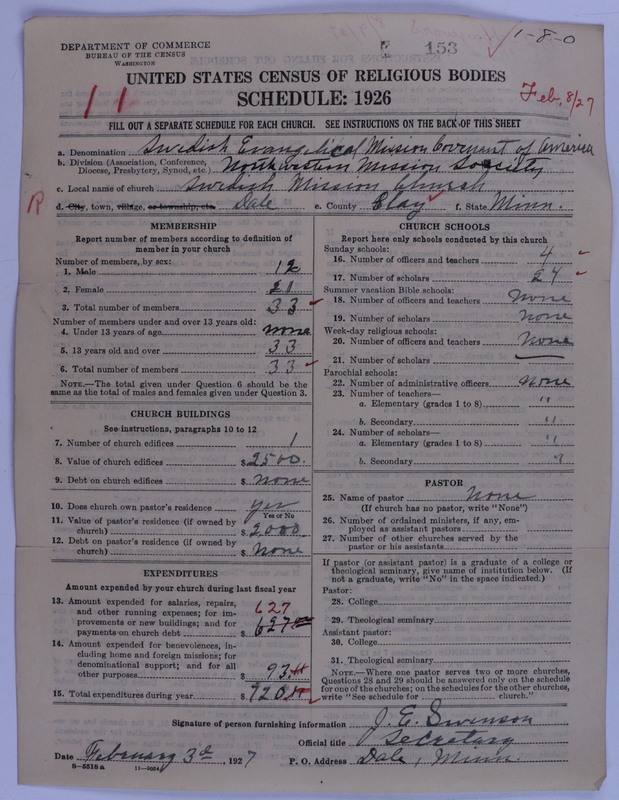 1-8-0
153
DEPARTMENT OF COMMERCE
BUREAU OF THE CENSUS
WASHINGTON
UNITED STATES CENSUS OF RELIGIOUS BODIES
SCHEDULE: 1926
11
Feb, 8/27
FILL OUT A SEPARATE SCHEDULE FOR EACH CHURCH. SEE INSTRUCTIONS ON THE BACK OF THIS SHEET
a. Denomination Swedish Evangelical Mission Covenant of America
b. Division (Association, Conference, Diocese, Presbytery, Synod, etc.) Northwestern Mission Society
c. Local name of church Swedish Mission Church
R
d. City, town, village, or township, etc. Dale e. County Clay f. State Minn.
MEMBERSHIP
Report number of members according to definition of
member in your church
Number of members, by sex:
1. Male 12
2. Female 21
3. Total number of members 33
Number of members under and over 13 years old:
4. Under 13 years of age none
5. 13 years old and over 33
6. Total number of members 33
NOTE.—The total given under Question 6 should be the
same as the total of males and females given under Question 3.
CHURCH BUILDINGS
See instructions, paragraphs 10 to 12
7. Number of church edifices 1
8. Value of church edifices $2500.
9. Debt on church edifices $ None
10. Does church own pastor's residence Yes
Yes or No
11. Value of pastor's residence (if owned by
church) $2000
12. Debt on pastor's residence (if owned by
church) $ None
EXPENDITURES
Amount expended by your church during last fiscal year
13. Amount expended for salaries, repairs,
and other running expenses; for im-
provements or new buildings; and for
payments on church debt $ 627
627
14. Amount expended for benevolences, in-
cluding home and foreign missions; for
denominational support; and for all
other purposes $ 93
15. Total expenditures during year $720
CHURCH SCHOOLS
Report here only schools conducted by this church
Sunday schools:
16. Number of officers and teachers 4
17. Number of scholars 24
Summer vacation Bible schools:
18. Number of officers and teachers none
19. Number of scholars none
Week-day religious schools:
20. Number of officers and teachers None
21. Number of scholars —
Parochial schools:
22. Number of administrative officers None
23. Number of teachers—
a. Elementary (grades 1 to 8) "
b. Secondary "
24. Number of scholars—
a. Elementary (grades 1 to 8) "
b. Secondary "
PASTOR
25. Name of pastor None
(If church has no pastor, write "None")
26. Number of ordained ministers, if any, em-
ployed as assistant pastors
27. Number of other churches served by the
pastor or his assistants
If pastor (or assistant pastor) is a graduate of a college or
theological seminary, give name of institution below. (If
not a graduate, write "No" in the space indicated.)
Pastor:
28. College
29. Theological seminary
Assistant pastor:
30. College
31. Theological seminary
NOTE.—Where one pastor serves two or more churches,
Questions 28 and 29 should be answered only on the schedule
for one of the churches; on the schedules for the other churches,
write "See schedule for church."
Signature of person furnishing information J. E. Swenson
Official title Secretary
Date February 3d, 1927 P. O. Address Dale, Minn.
8-5518a 11-9054